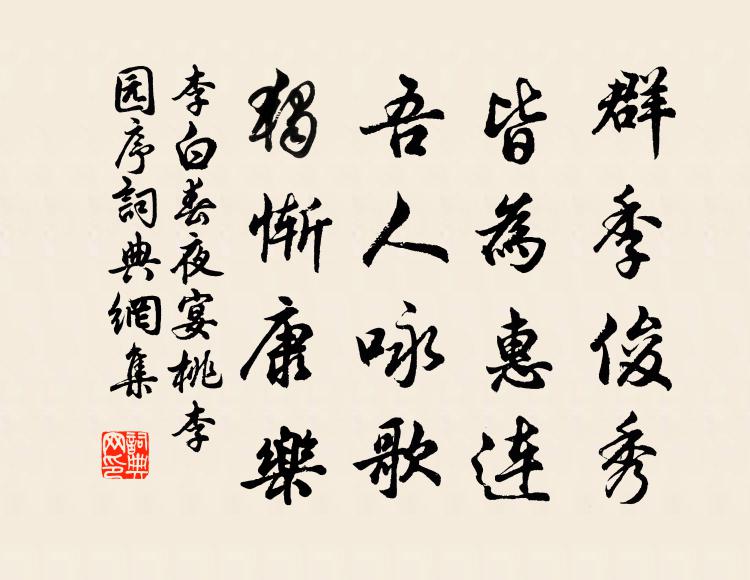 群季俊秀
皆為惠连
吾人咏歌
獨慚康樂
李白春夜宴桃李
园序詞典網集
詞典
网印